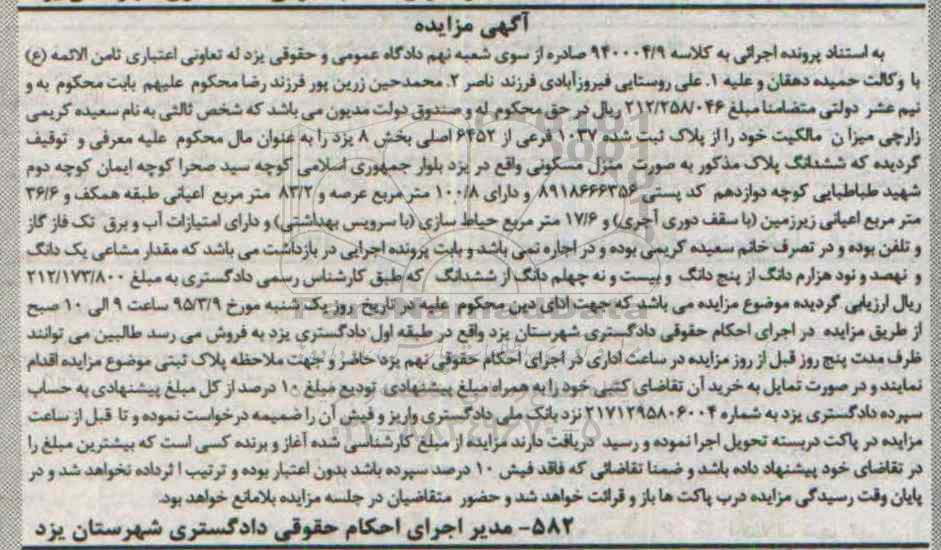 آگهی مزایده
به استناد پرونده اجرائی به کلاسه ۹۴۰۰۰۴/۹ صادره از سوی شعبه نهم دادگاه عمومی و حقوقی یزد له تعاونی اعتباری ثامن الائمه (ع)
با وکالت حمیده دهقان و علیه ۱. علی روستایی فیروزآبادی فرزند ناصر ۲. محمدحین زرین پور فرزند رضا محکوم علیهم بابت محکوم به و
نیم عشر دولتی متضامنا مبلغ ۲۱۲/۲۵۸/۰۴۶ ریال در حق محکوم له و صندوق دولت مدیون می باشد که شخص ثالثی به نام سعیده کریمی
زارچی میزان مالکیت خود را از پلاک ثبت شده ۱۰۳۷ فرعی از ۶۴۵۲ اصلی بخش ۸ یزد را به عنوان مال محکوم علیه معرفی و توقیف
گردیده که ششدانگ پلاک مذکور به صورت منزل مسکونی واقع در یزد بلوار جمهوری اسلامی کوچه سید صحرا کوچه ایمان کوچه دوم
شهید طباطبایی کوچه دوازدهم کد پستی ۸۹۱۸۶۶۶۳۵۶ و دارای ۱۰۰/۸ متر مربع عرصه و ۸۳/۲ متر مربع اعیانی طبقه همکف و ۳۶/۶
متر مربع اعیانی زیرزمین (با سقف دوری آجری) و ۱۷/۶ متر مربع حیاط سازی (با سرویس بهداشتی) و دارای امتیازات آب و برق تک فاز گاز
و تلفن بوده و در تصرف خانم سعیده کریمی بوده و در اجاره نمی باشد و بابت پرونده اجرایی در بازداشت می باشد که مقدار مشاعی یک دانگ
و نهصد و نود هزارم دانگ از پنج دانگ و بیست و نه چهلم دانگ از ششدانگ که طبق کارشناس رسمی دادگستری به مبلغ ۲۱۲/۱۷۳/۸۰۰
ریال ارزیابی گردیده موضوع مزایده می باشد که جهت ادای دین محکوم علیه در تاریخ روز یک شنبه مورخ ۹۵/۳/۹ ساعت ۹ الی ۱۰ صبح
از طریق مزایده در اجرای احکام حقوقی دادگستری شهرستان یزد واقع در طبقه اول دادگستری یزد به فروش می رسد طالبین می توانند
ظرف مدت پنج روز قبل از روز مزایده در ساعت اداری در اجرای احکام حقوقی نهم یزد حاضر و جهت ملاحظه پلاک ثبتی موضوع مزایده اقدام
نمایند و در صورت تمایل به خرید آن تقاضای کتبی خود را به همراه مبلغ پیشنهادی تودیع مبلغ ۱۰ درصد از کل مبلغ پیشنهادی به حساب
سپرده دادگستری یزد به شماره ۲۱۷۱۲۹۵۸۰۶۰۰۴ نزد بانک ملی دادگستری واریز و فیش آن را ضمیمه درخواست نموده و تا قبل از ساعت
مزایده در پاکت دربسته تحویل اجرا نموده و رسید دریافت دارند مزایده از مبلغ کارشناسی شده آغاز و برنده کسی است که بیشترین مبلغ را
در تقاضای خود پیشنهاد داده باشد و ضمنا تقاضائی که فاقد فیش ۱۰ درصد سپرده باشد بدون اعتبار بوده و ترتیب اثر داده نخواهد شد و در
پایان وقت رسیدگی مزایده درب پاکت ها باز و قرائت خواهد شد و حضور متقاضیان در جلسه مزایده بلامانع خواهد بود.
۵۸۲- مدیر اجرای احکام حقوقی دادگستری شهرستان یزد
ParsNamadData